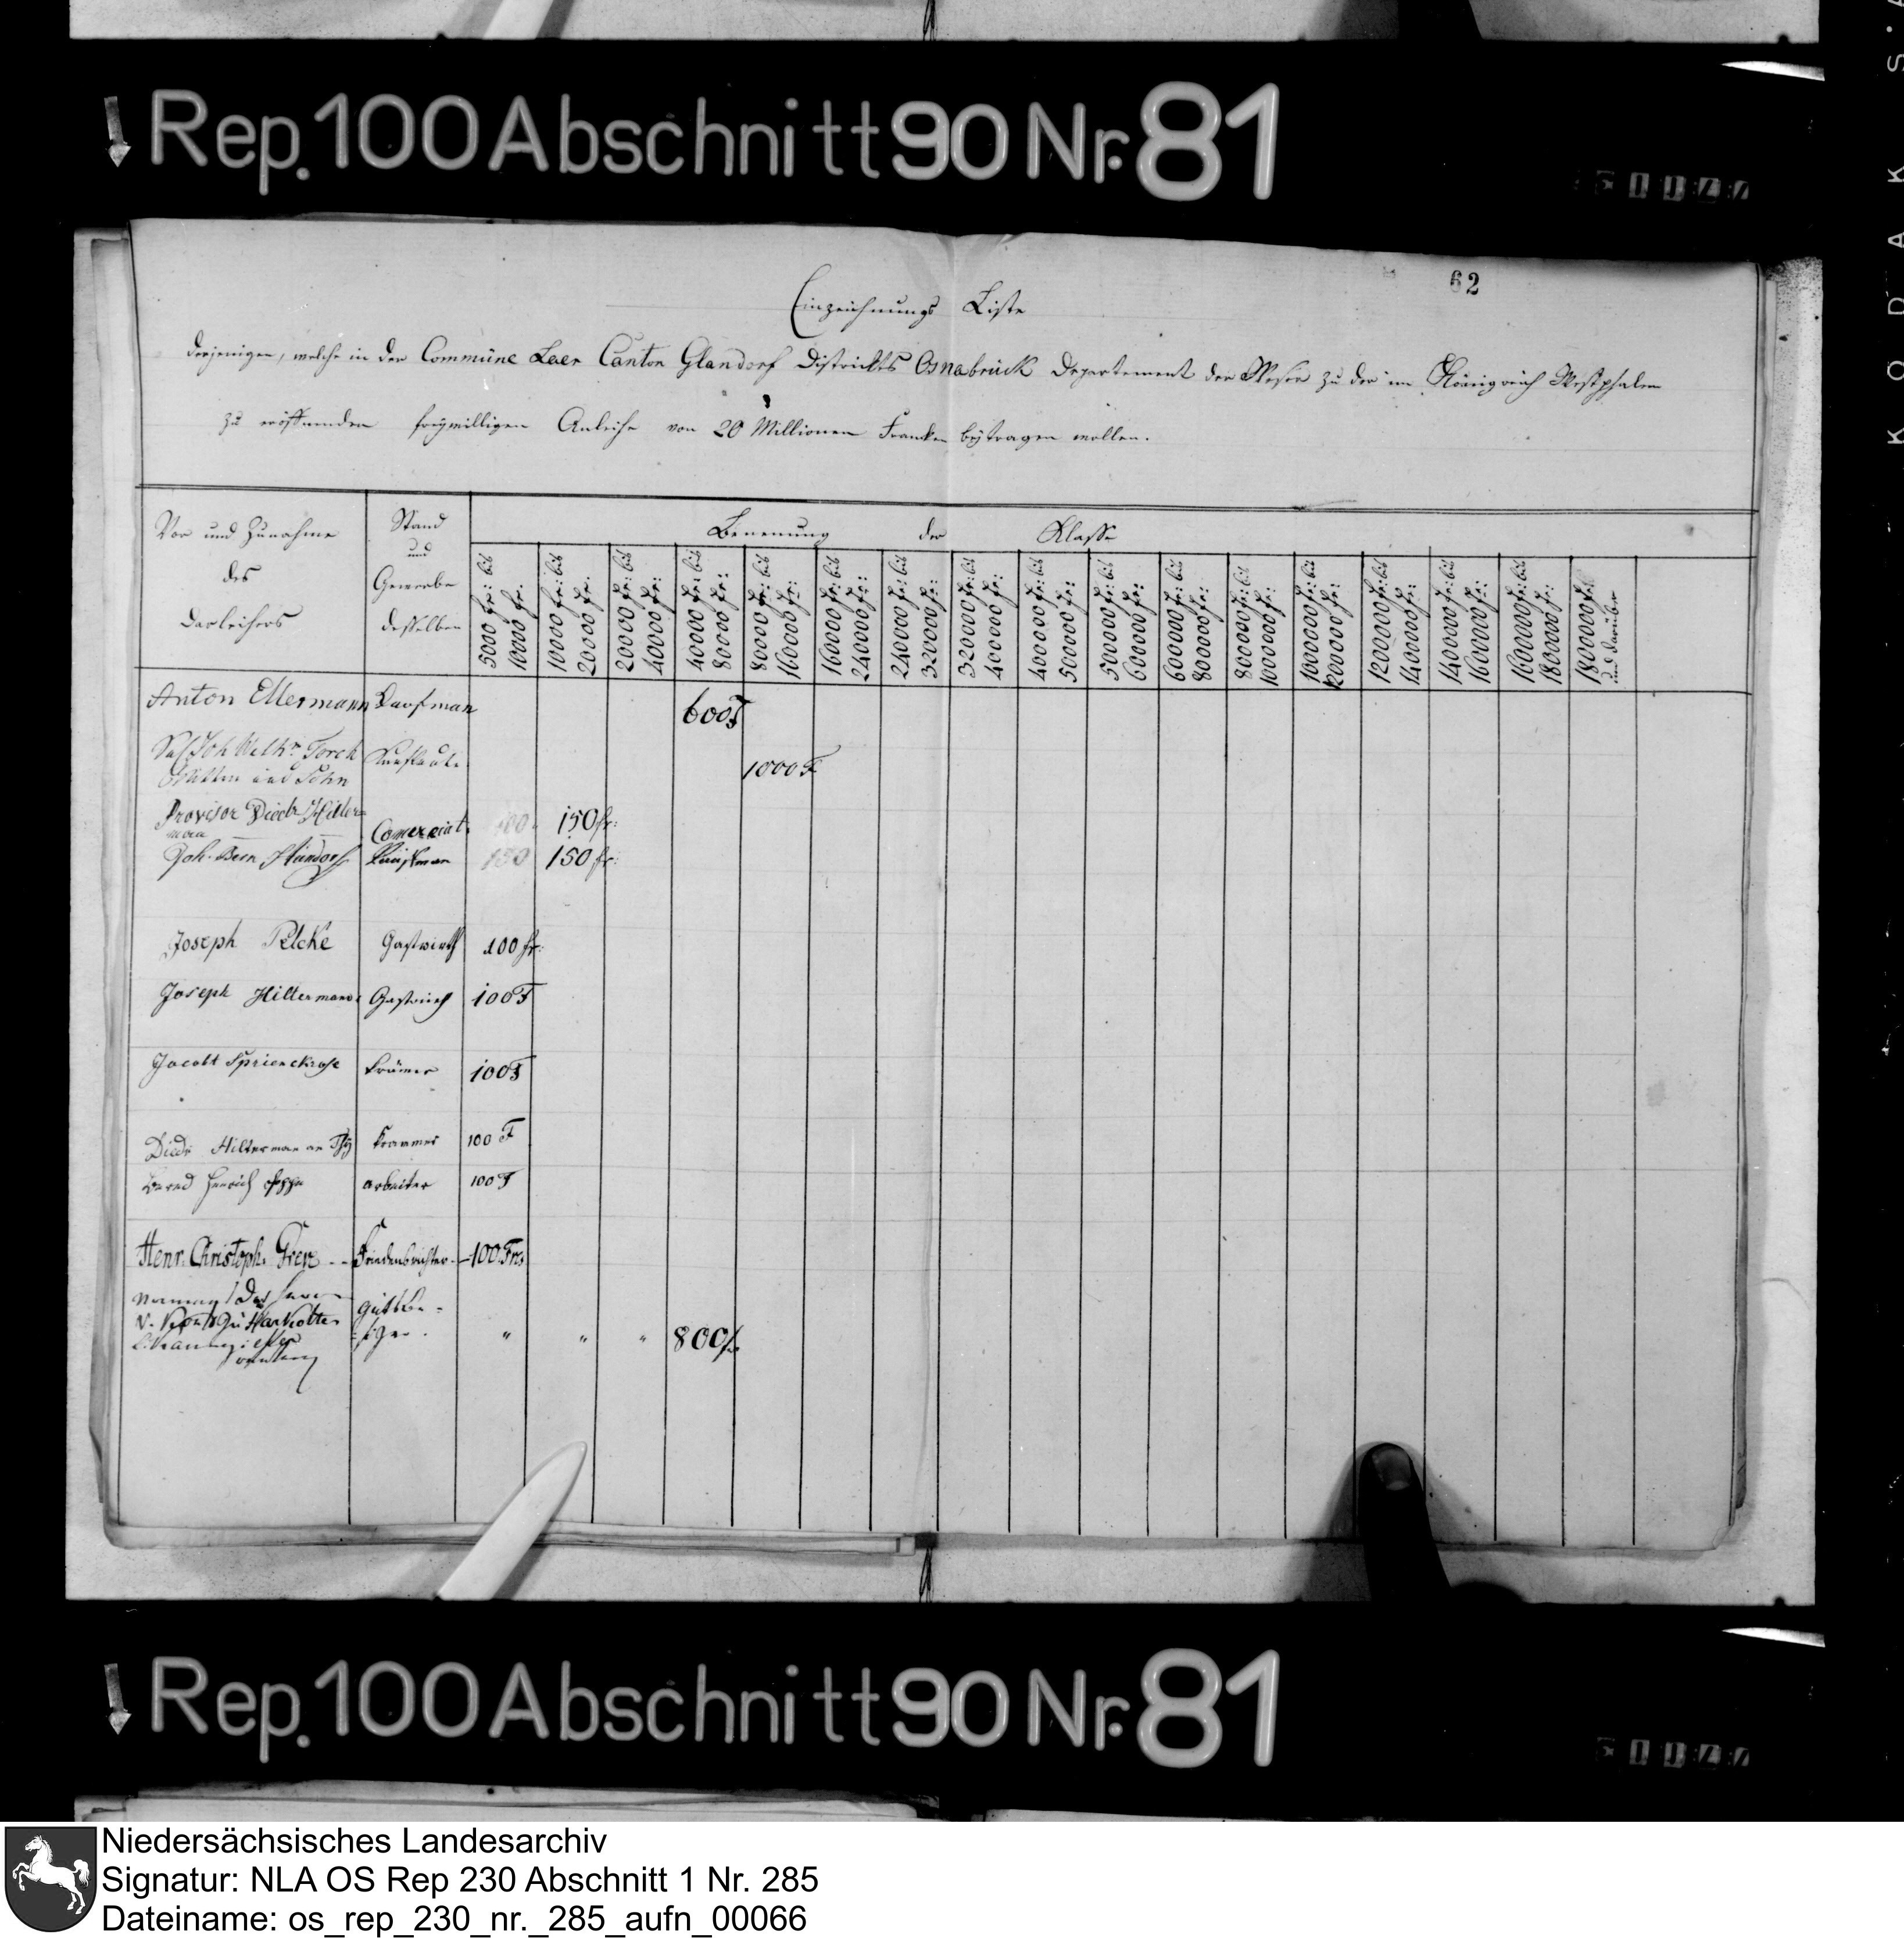 Rep. 100 Abschnitt 90 Nr. 81
62
Einzeichnungs Liste
derjenigen, welche in der Commüne Laer Canton Glandorf Districkts Osnabrück Departement der Weser zu der im Königreich Westphalen
zu eröffnenden freywilligen Anleihe von 20 Millionen Franken beytragen wollen.
Vor und Zunahme
des
Darleihers
Stand
und
Gewerbe
desselben
Benennung der Klasse
5000 fr: bis
10000 fr.
10000 fr: bis
20000 fr.
20000 fr: bis
40000 fr:
40000 fr: bis
80000 fr:
80000 fr: bis
160000 fr:
160000 fr: bis
240000 fr:
240000 fr: bis
320000 fr:
320000 fr: bis
400000 fr:
400000 fr: bis
500000 fr:
500000 fr: bis
600000 fr:
600000 fr: bis
800000 fr:
800000 fr: bis
1000000 fr:
1000000 fr: bis
1200000 fr:
1200000 fr: bis
1400000 fr:
1400000 fr: bis
1600000 fr:
1600000 fr: bis
1800000 fr:
1800000 fr.
und darüber
Anton Ellermann Kaufman 600 F
Joh Kaufleute 1000 F
und Sohn
Provisor Diedr Hilter=
man Comerciant 100 150 fr:
Joh. Bern Kaufman 150 150 fr:
Joseph Pelcke Gastwirth 100 fr:
Joseph Hiltermann Gastwirth 100 F
Jacobt Krämer 100 F
Diedr Hilterman Kramer 100 F
Berend Henrich arbeiter 100 F
Henr. Christoph. Friedensrichter 100 Frs
Namens des Herrn
v. zu Harkotten Gutsbe=
sitzer " " " 800 fr
Rep. 100 Abschnitt 90 Nr. 81
Niedersächsisches Landesarchiv
Signatur: NLA OS Rep 230 Abschnitt 1 Nr. 285
Dateiname: os_rep_230_nr._285_aufn_00066
KODAK S.A